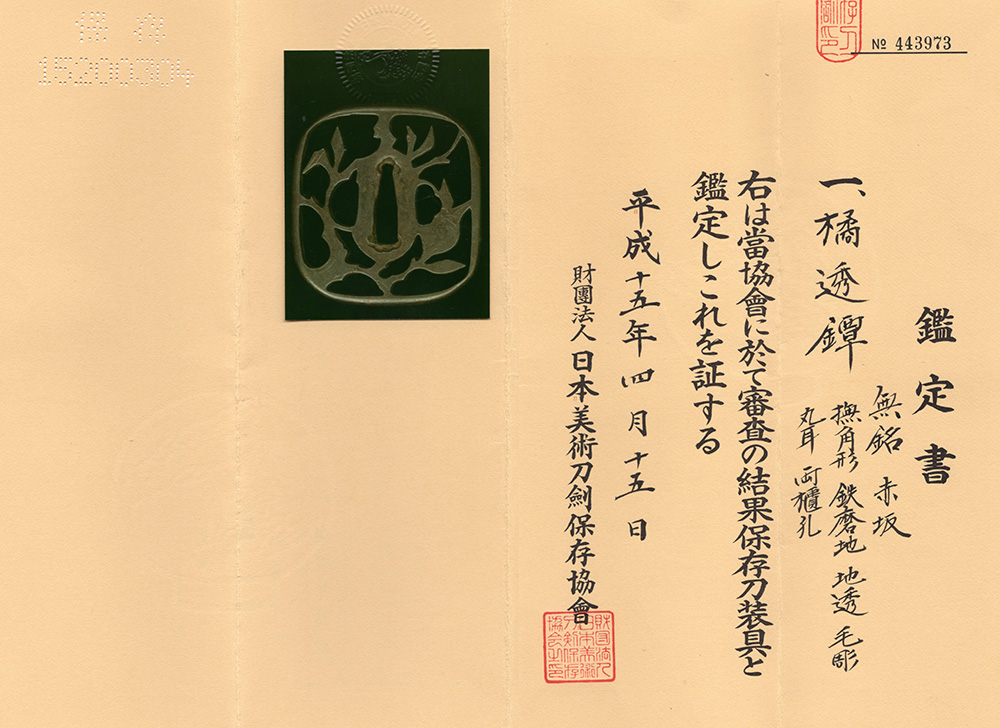 鑑定書
一、橘透鐔
無銘 赤坂
撫角形 鉄磨地 地透 毛彫
丸耳 両櫃孔
右は當協會に於て審査の結果保存刀装具と
鑑定しこれを証する
平成十五年四月十五日
財團法人日本美術刀劍保存協會
財団法人日本美術刀剣保存協会之印
№ 443973
保存
15200304